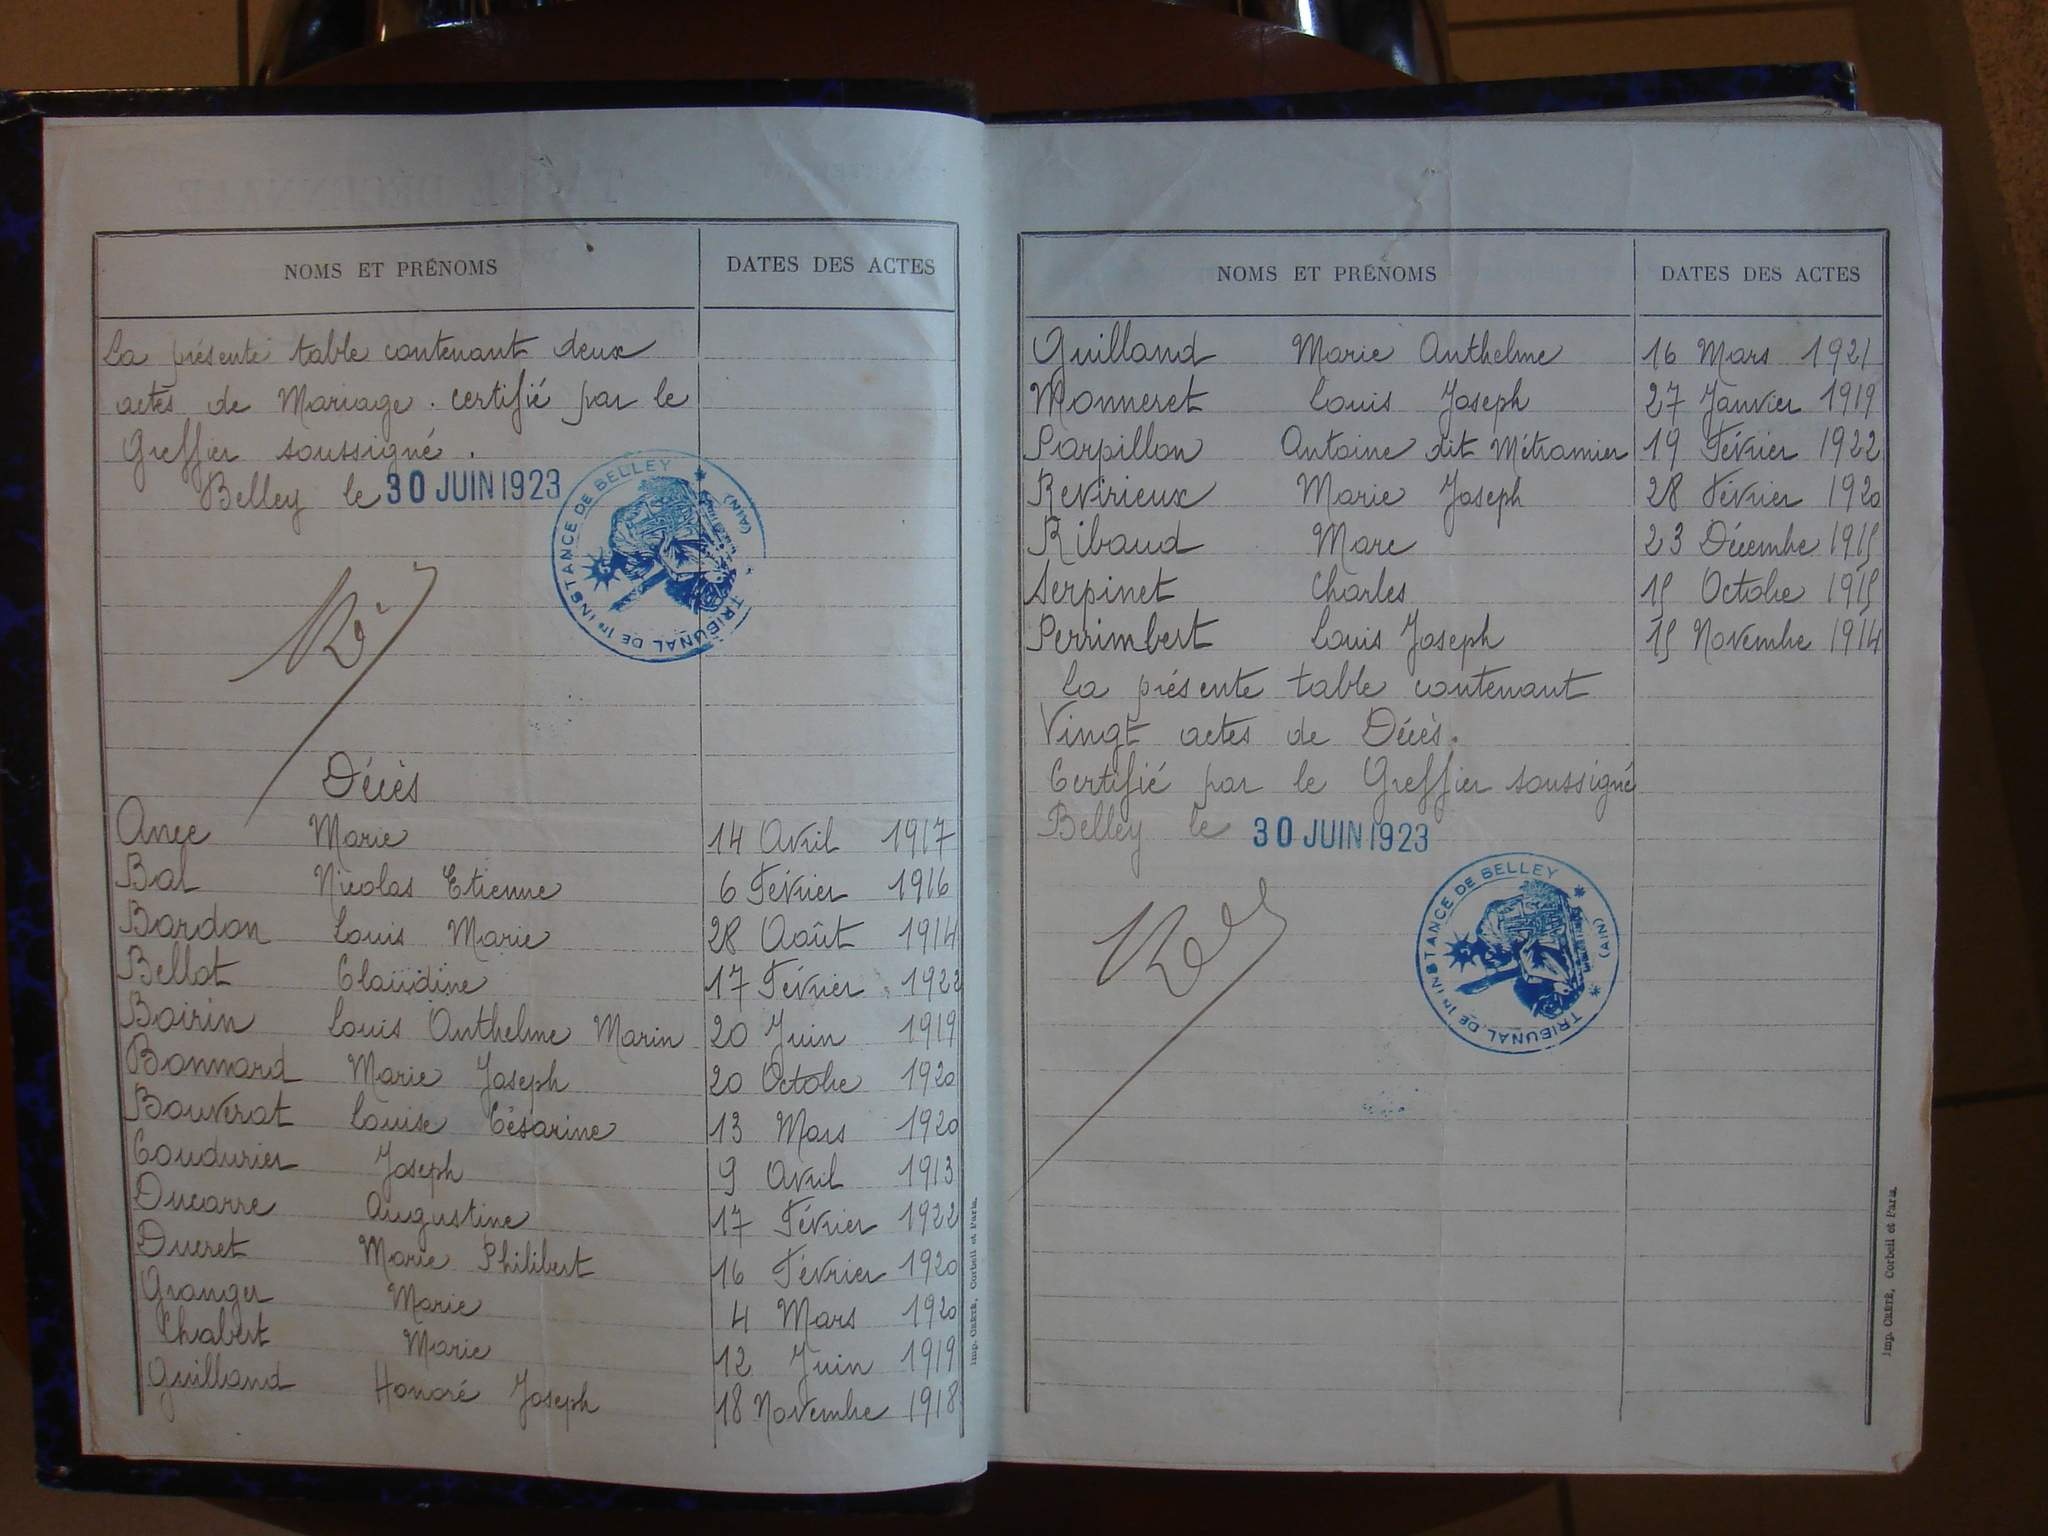 NOMS ET PRÉNOMS DATES DES ACTES
La présente table contenant deux
actes de Mariage. certifié par le
Greffier soussigné.
Belley le 30 JUIN 1923
TRIBUNAL DE 1re INSTANCE DE BELLEY * (AIN)
Décès
Ance Marie 14 Avril 1917
Bal Nicolas Etienne 6 Février 1916
Bardon Louis Marie 28 Août 1914
Bellot Claudine 17 Février 1922
Boirin Louis Anthelme Marin 20 Juin 1919
Bonnard Marie Joseph 20 Octobre 1920
Bouverat Louise Césarine 13 Mars 1920
Coudurier Joseph 9 Avril 1913
Ducarre Augustine 17 Février 1922
Ducret Marie Philibert 16 Février 1920
Granger Marie 4 Mars 1920
Chabert Marie 12 Juin 1919
Guilland Honoré Joseph 18 Novembre 1918
Imp. CRÉTÉ, Corbeil et Paris.
NOMS ET PRÉNOMS DATES DES ACTES
Guilland Marie Anthelme 16 Mars 1921
Monneret Louis Joseph 27 Janvier 1919
Parpillon Antoine dit Métramier 19 Février 1922
Revirieux Marie Joseph 28 Février 1920
Ribaud Marc 23 Décembre 1915
Serpinet Charles 15 Octobre 1915
Perrimbert Louis Joseph 15 Novembre 1914
La présente table contenant
Vingt actes de Décès.
Certifié par le Greffier soussigné
Belley le 30 JUIN 1923
TRIBUNAL DE 1re INSTANCE DE BELLEY * (AIN) *
Imp. CRÉTÉ, Corbeil et Paris.